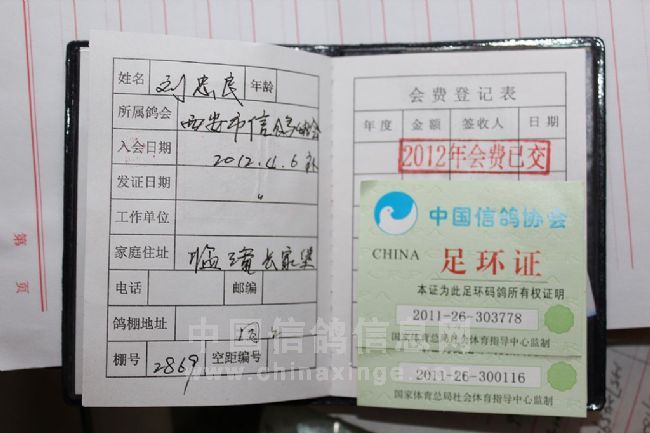 姓名 刘忠民 年龄
所属鸽会 西安市信鸽协会
入会日期 2012.4.6
发证日期 〃
工作单位
家庭住址 临潼
电话 邮编
鸽棚地址 同上
棚号 2869 空距编号
会费登记表
年度 金额 签收人 日期
2012年会费已交
中国信鸽协会
CHINA 足环证
本证为此足环码鸽所有权证明
2011-26-303778
国家体育总局社会体育指导中心监制
2011-26-300116
国家体育总局社会体育指导中心监制
第 页
中国信鸽信息网
www.chinaxinge.com